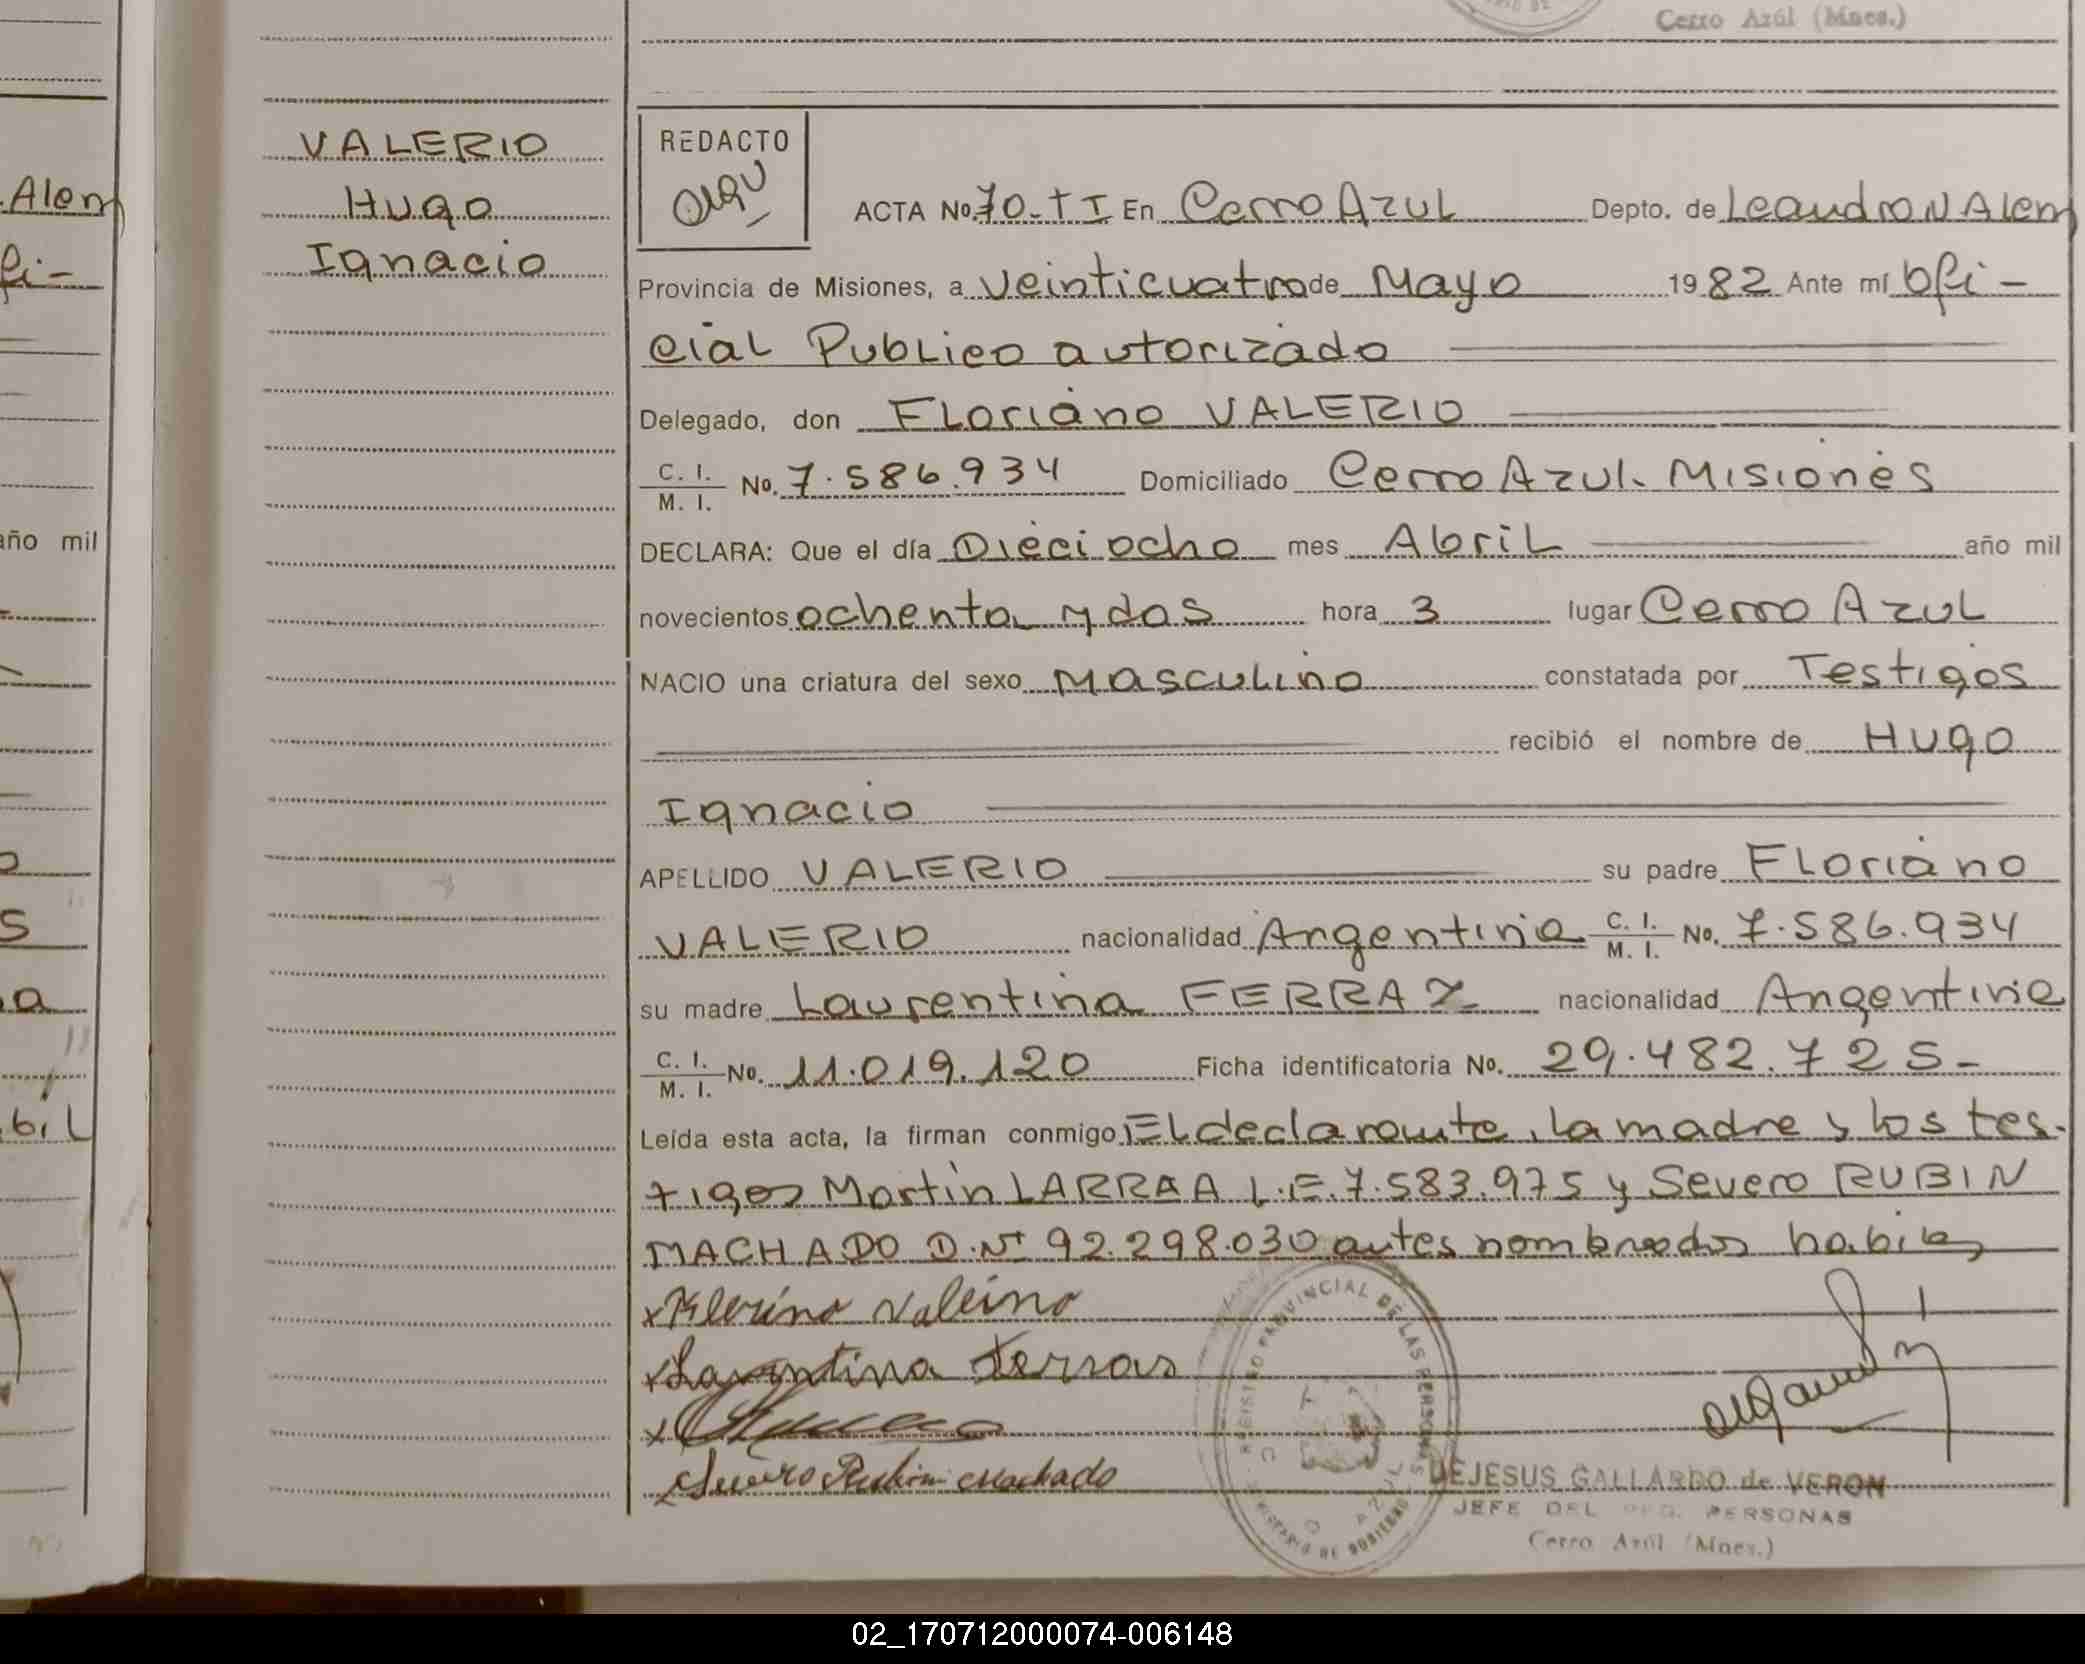 Cerro Azúl (Mnes.)
VALERIO
Hugo
Ignacio
Alem
fi-
año mil
s
a
bil
REDACTO
ACTA No. 70-TI En Cerro Azul Depto. de Leandro N Alem
Provincia de Misiones, a veinticuatro de Mayo 1982 Ante mí Ofi-
cial Publico autorizado
Delegado, don Floriano VALERIO
C. I. / M. I. No. 7.586.934 Domiciliado Cerro Azul. Misiones
DECLARA: Que el día Dieciocho mes Abril año mil
novecientos ochenta y dos hora 3 lugar Cerro Azul
NACIO una criatura del sexo Masculino constatada por Testigos
recibió el nombre de Hugo
Ignacio
APELLIDO VALERIO su padre Floriano
VALERIO nacionalidad Argentina C. I. / M. I. No. 7.586.934
su madre Laurentina FERRAZ nacionalidad Argentina
C. I. / M. I. No. 11.019.120 Ficha identificatoria No. 29.482.725-
Leída esta acta, la firman conmigo El declarante, la madre y los tes-
tigos Martin LARRAA L.E. 7.583.975 y Severo RUBIN
MACHADO D.Nº 92.298.030 antes nombrados habiles
x Florino Valerino
x Larentina Ferras
x
Severo Rubin Machado
REGISTRO PROVINCIAL DE LAS PERSONAS
DEJESUS GALLARDO de VERON
JEFE DEL REG. PERSONAS
Cerro Azúl (Mnes.)
02_170712000074-006148